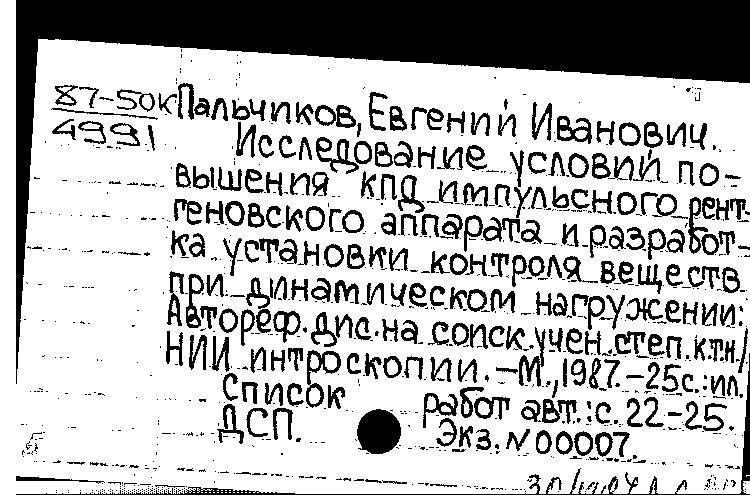 87-50к
4991
Пальчиков, Евгений Иванович.
Исследование условий по-
вышения КПД импульсного рент-
геновского аппарата и разработ-
ка установки контроля веществ
при динамическом нагружении:
Автореф. дис. на соиск. учен. степ. к.т.н./
НИИ интроскопии. – М., 1987. – 25с.: ил.
Список работ авт.: с. 22-25.
ДСП. Экз. N 00007.